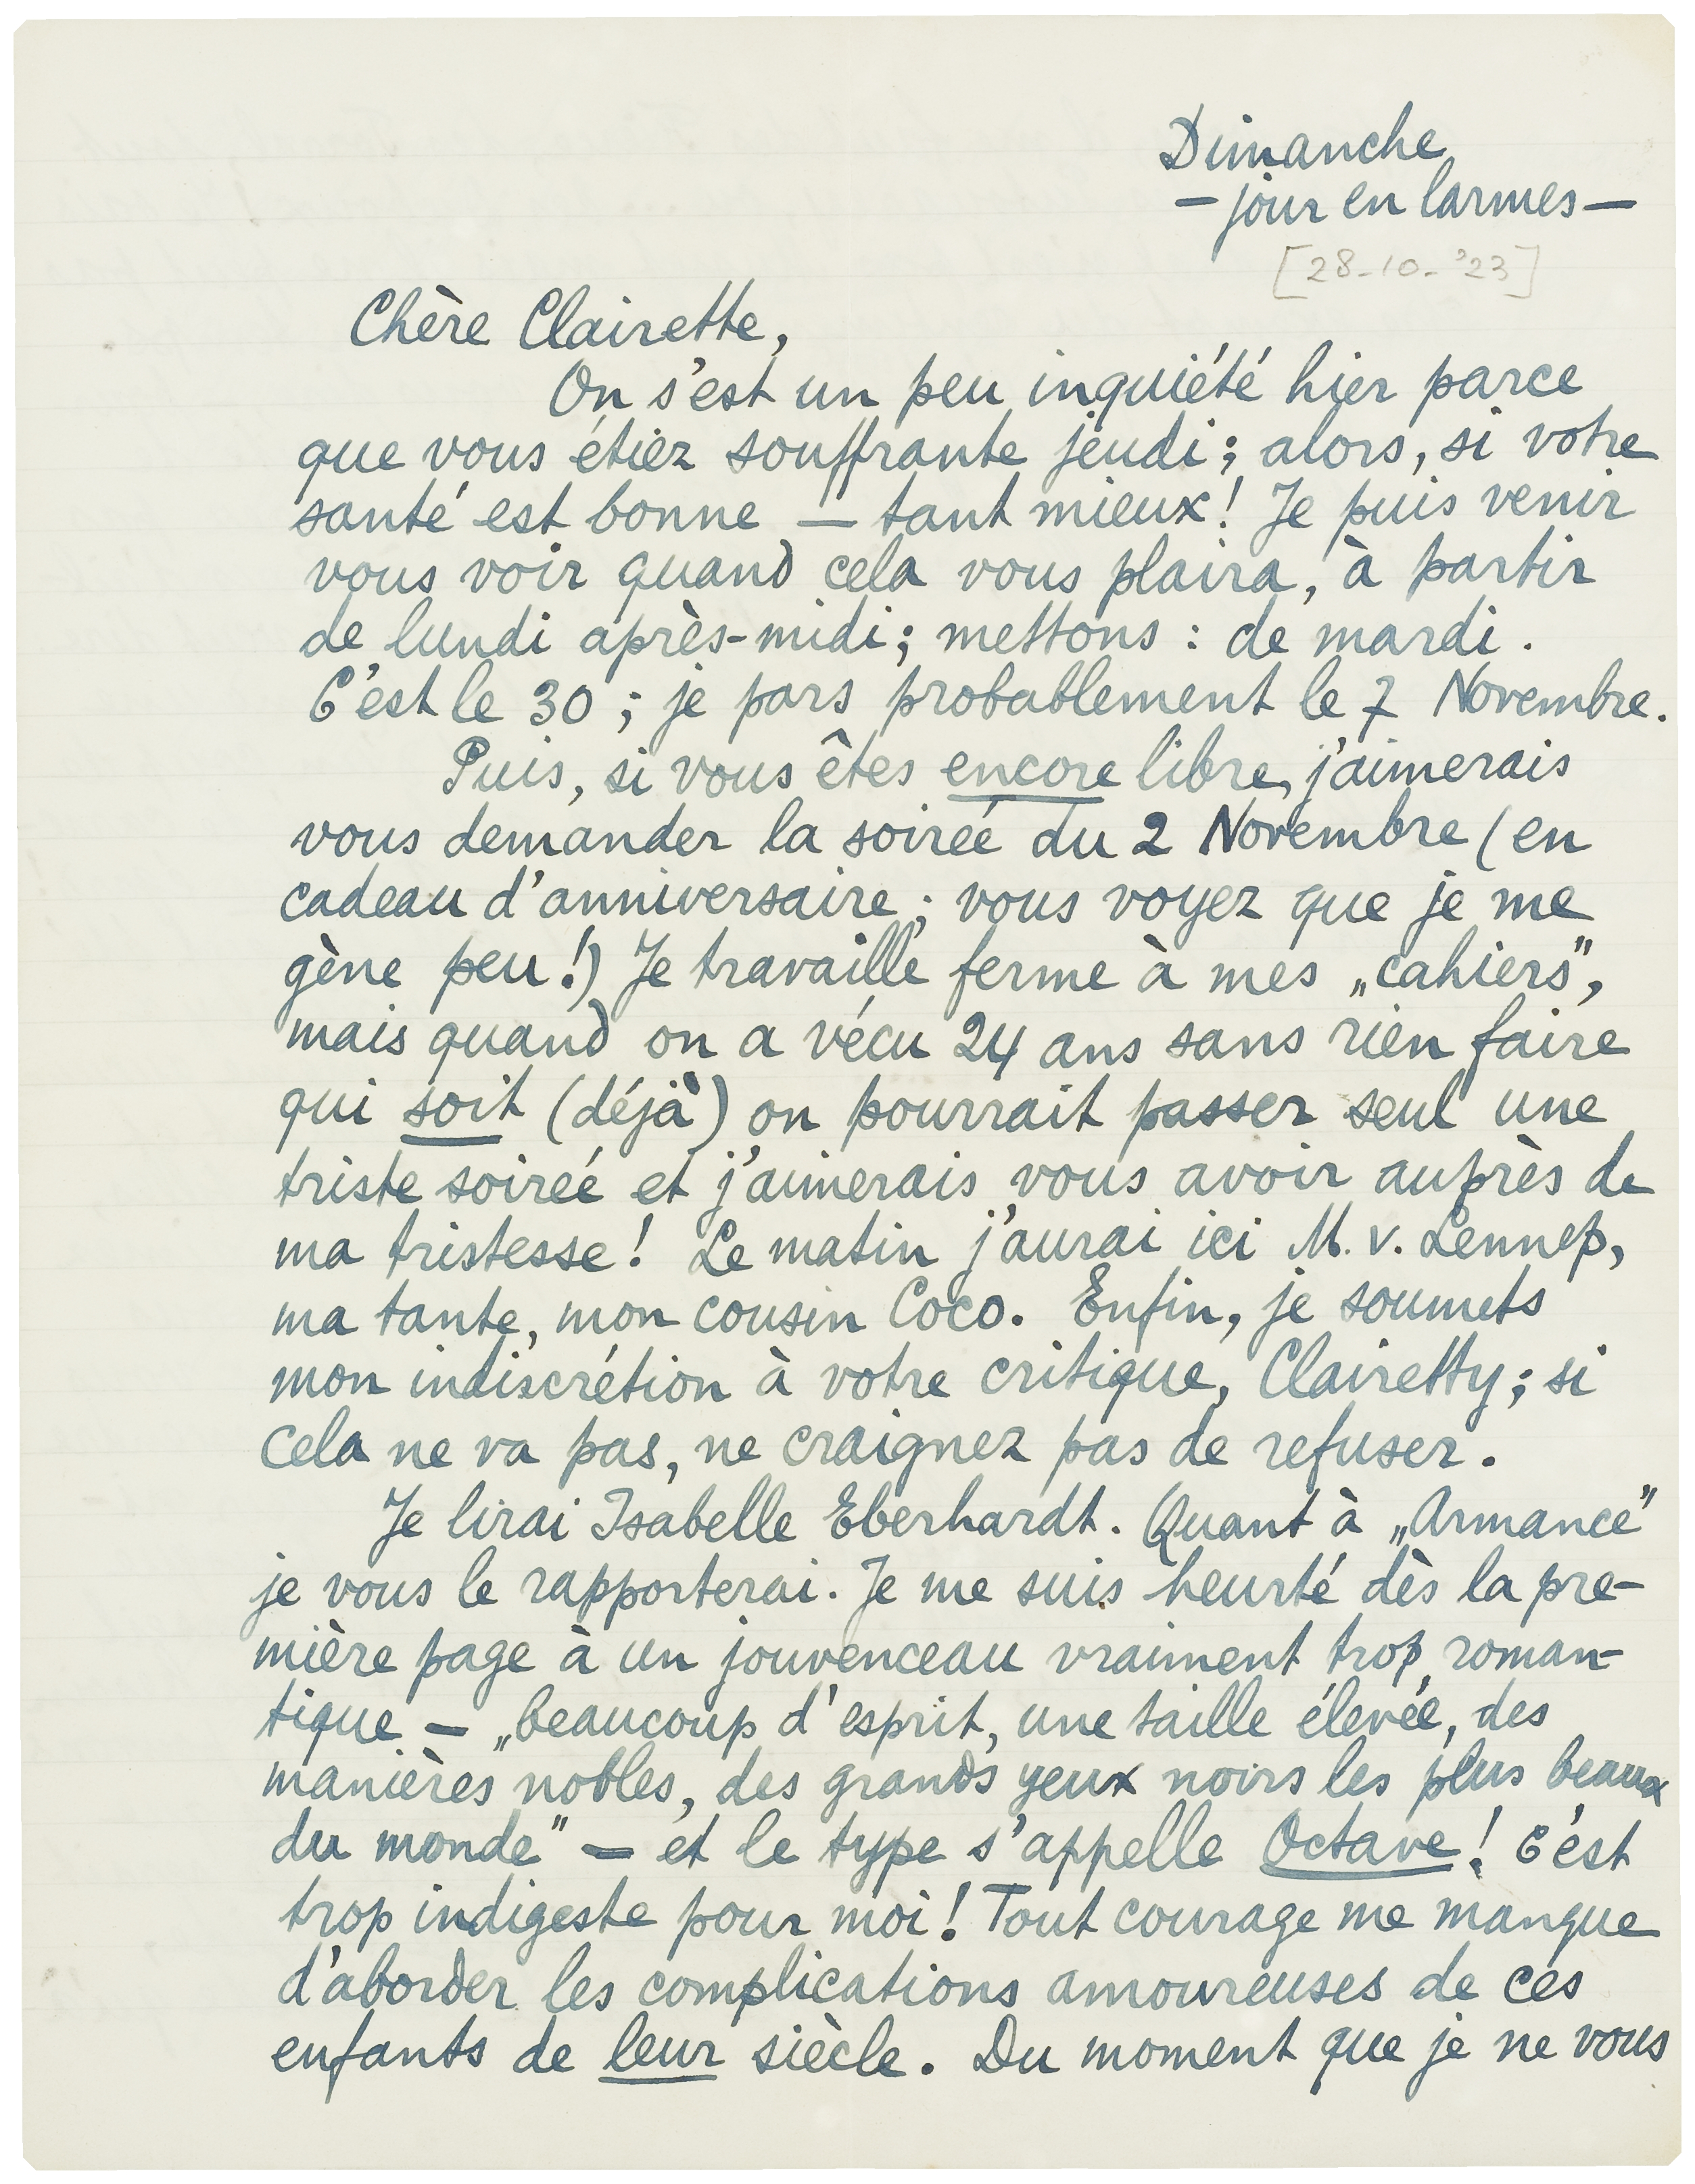 Dimanche
— jour en larmes —
[28-10-'23]
Chère Clairette,
On s'est un peu inquiété hier parce
que vous étiez souffrante jeudi; alors, si votre
santé est bonne — tant mieux! Je puis venir
vous voir quand cela vous plaira, à partir
de lundi après-midi; mettons: de mardi.
C'est le 30; je pars probablement le 7 Novembre.
Puis, si vous êtes encore libre, j'aimerais
vous demander la soireé du 2 Novembre (en
cadeau d'anniversaire; vous voyez que je me
gène peu!) Je travaille ferme à mes „cahiers”,
mais quand on a vécu 24 ans sans rien faire
qui soit (déjà) on pourrait passer seul une
triste soireé et j'aimerais vous avoir auprès de
ma tristesse! Le matin j'aurai ici M. v. Lennep,
ma tante, mon cousin Coco. Enfin, je soumets
mon indiscrétion à votre critique, Clairetty; si
cela ne va pas, ne craignez pas de refuser.
Je lirai Isabelle Eberhardt. Quant à „Armance”
je vous le rapporterai. Je me suis heurté dès la pre-
mière page à un jouvenceau vraiment trop roman-
tique — „beaucoup d'esprit, une taille élevée, des
manières nobles, des grands yeux noirs les plus beaux
du monde” — et le type s'appelle Octave! C'est
trop indigeste pour moi! Tout courage me manque
d'aborder les complications amoureuses de ces
enfants de leur siècle. Du moment que je ne vous